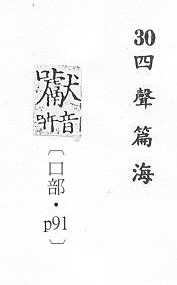 30四聲篇海
〔口部・p91〕